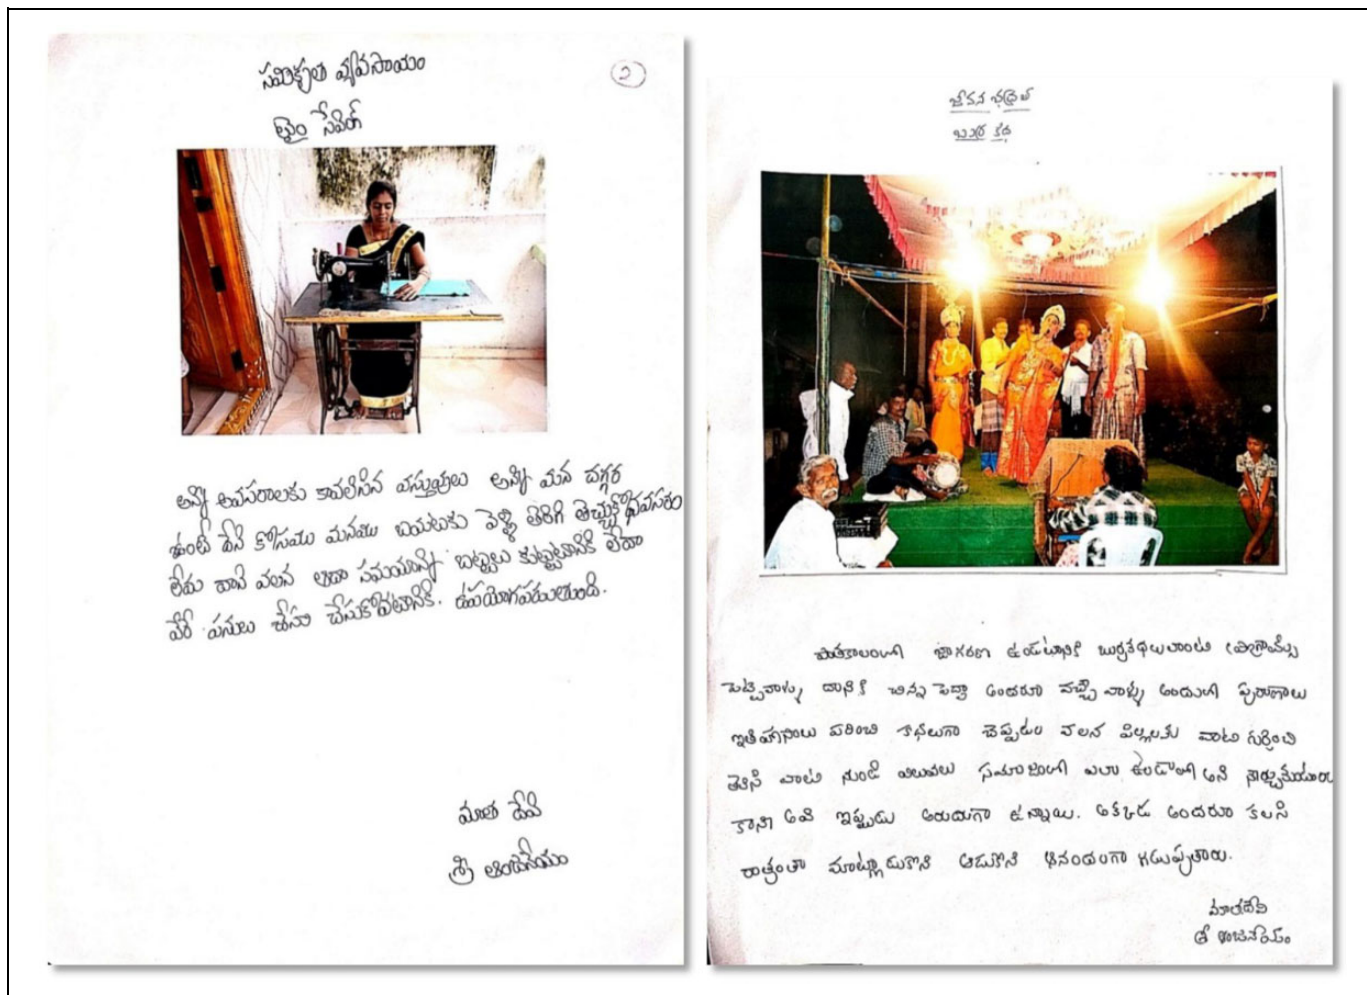 సమీకృత వ్యవసాయం
2
టైం సేవింగ్
అన్ని అవసరాలకు కావలసిన వస్తువులు అన్ని మన దగ్గర
ఉంటే దేని కోసము మనము బయటకు వెళ్ళి తిరిగి తెచ్చుకోనవసరం
లేదు దాని వలన ఆదా సమయాన్ని బట్టలు కుట్టుటానికి లేదా
వేరే పనులు చేసుకోవటానికి. ఉపయోగపడుతుంది.
మాత దేవి
శ్రీ ఆంజనేయం
జీవన భద్రత
బుర్ర కథ
పాతకాలంలో జాగరణ ఉండటానికి బుర్రకథలులాంటి ప్రోగ్రామ్స్
పెట్టేవాళ్ళు దానికి చిన్న పెద్దా అందరూ వచ్చే వాళ్ళు అందులో పురాణాలు
ఇతిహాసాలు గురించి కథలుగా చెప్పడం వలన పిల్లలకు వాటి గురించి
తెలిసి వాటి నుండి విలువలు సమాజంలో ఎలా ఉండాలి అని నేర్చుకునేవారు
కాని అవి ఇప్పుడు అరుదుగా ఉన్నాయి. అక్కడ అందరూ కలసి
రాత్రంతా మాట్లాడుకొని ఆడుకొని ఆనందంగా గడుపుతారు.
మాతదేవి
శ్రీ ఆంజనేయం